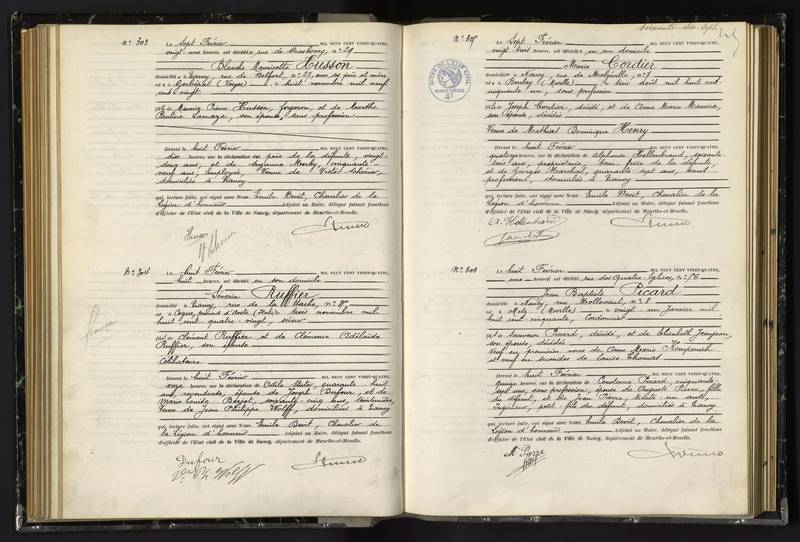 N° 303 Le Sept Février MIL NEUF CENT VINGT-QUATRE,
vingt-une heures, est décédée rue de Strasbourg, n° 29
Blanche Mauricette Husson
domiciliée à Nancy, rue de Belfort, n° 29, avec ses père et mère
née à (Vosges), le huit novembre mil neuf
cent vingt
fille de Pierre Husson, forgeron, et de Marthe
Pauline, son épouse, sans profession
Dressé le huit Février MIL NEUF CENT VINGT-QUATRE,
dix heures, sur la déclaration du père de la défunte, vingt
deux ans, et de cinquante
neuf ans, employée, Veuve de
domiciliés à Nancy
qui, lecture faite, ont signé avec Nous Emile Devit, Chevalier de la
Légion d'honneur Adjoint au Maire, délégué faisant fonctions
d'officier de l'État civil de la Ville de Nancy, département de Meurthe-et-Moselle.
Husson
N° 304 Le huit Février MIL NEUF CENT VINGT-QUATRE,
huit heures, est décédé en son domicile
Séverin Ruffier
domicilié à Nancy, rue de la Hache, n°
né à Cogne, province d'Aoste (Italie), trois novembre mil
huit cent quatre vingt,
fils de Clément Ruffier et de Clémence Adélaïde
Ruffier, son épouse
Célibataire
Dressé le huit Février MIL NEUF CENT VINGT-QUATRE,
onze heures, sur la déclaration de Odile quarante huit
ans, épouse de Joseph Dufour, et de
Marie Emélie soixante cinq ans,
Veuve de Jean Philippe Wolff, domiciliées à Nancy
qui, lecture faite, ont signé avec Nous Emile Devit, Chevalier de
la Légion d'honneur Adjoint au Maire, délégué faisant fonctions
d'officier de l'État civil de la Ville de Nancy, département de Meurthe-et-Moselle.
Dufour
Ve Ph Wolff
Soixante-dix-sept
N° 305 Le Sept Février MIL NEUF CENT VINGT-QUATRE,
vingt trois heures, est décédée en son domicile
Marie Cordier
domiciliée à Nancy, rue de n° 7
née à Boulay (Moselle) le trois août mil huit cent
cinquante un, sans profession
fille de Joseph Cordier, décédé, et de Anne Marie
son épouse, décédée
Veuve de Mathias Dominique Henry
Dressé le huit Février MIL NEUF CENT VINGT-QUATRE,
quatorze heures, sur la déclaration de Alphonse Hellenbrand, soixante
trois ans, propriétaire, beau frère de la défunte,
et de Georges Marchal, quarante sept ans, sans
profession, domiciliés à Nancy
qui, lecture faite, ont signé avec Nous Emile Devit, Chevalier de la
Légion d'honneur Adjoint au Maire, délégué faisant fonctions
d'officier de l'État civil de la Ville de Nancy, département de Meurthe-et-Moselle.
A. Hellenbrand
Le huit Février MIL NEUF CENT VINGT-QUATRE,
une heure, est décédé rue des Quatre Églises, n°
Jean Baptiste Picard
domicilié à Nancy, rue Mollevaut, n° 8
né à Metz (Moselle) le vingt un Janvier mil
huit cent cinquante, Cordonnier
fils de Picard, décédé, et de Elisabeth Jeanjean,
son épouse, décédée
Veuf en premières noces de Anne Marie
et veuf en secondes de Louise Thomas
Dressé le huit Février MIL NEUF CENT VINGT-QUATRE,
quinze heures, sur la déclaration de Constance Picard, cinquante
sept ans, sans profession, épouse de Auguste Pierre, fille
du défunt, et de Jean Pierre, trente un ans,
Ingénieur, petit-fils du défunt, domiciliés à Nancy
qui, lecture faite, ont signé avec Nous Emile Devit, Chevalier de la
Légion d'honneur Adjoint au Maire, délégué faisant fonctions
d'officier de l'État civil de la Ville de Nancy, département de Meurthe-et-Moselle.
Pierre